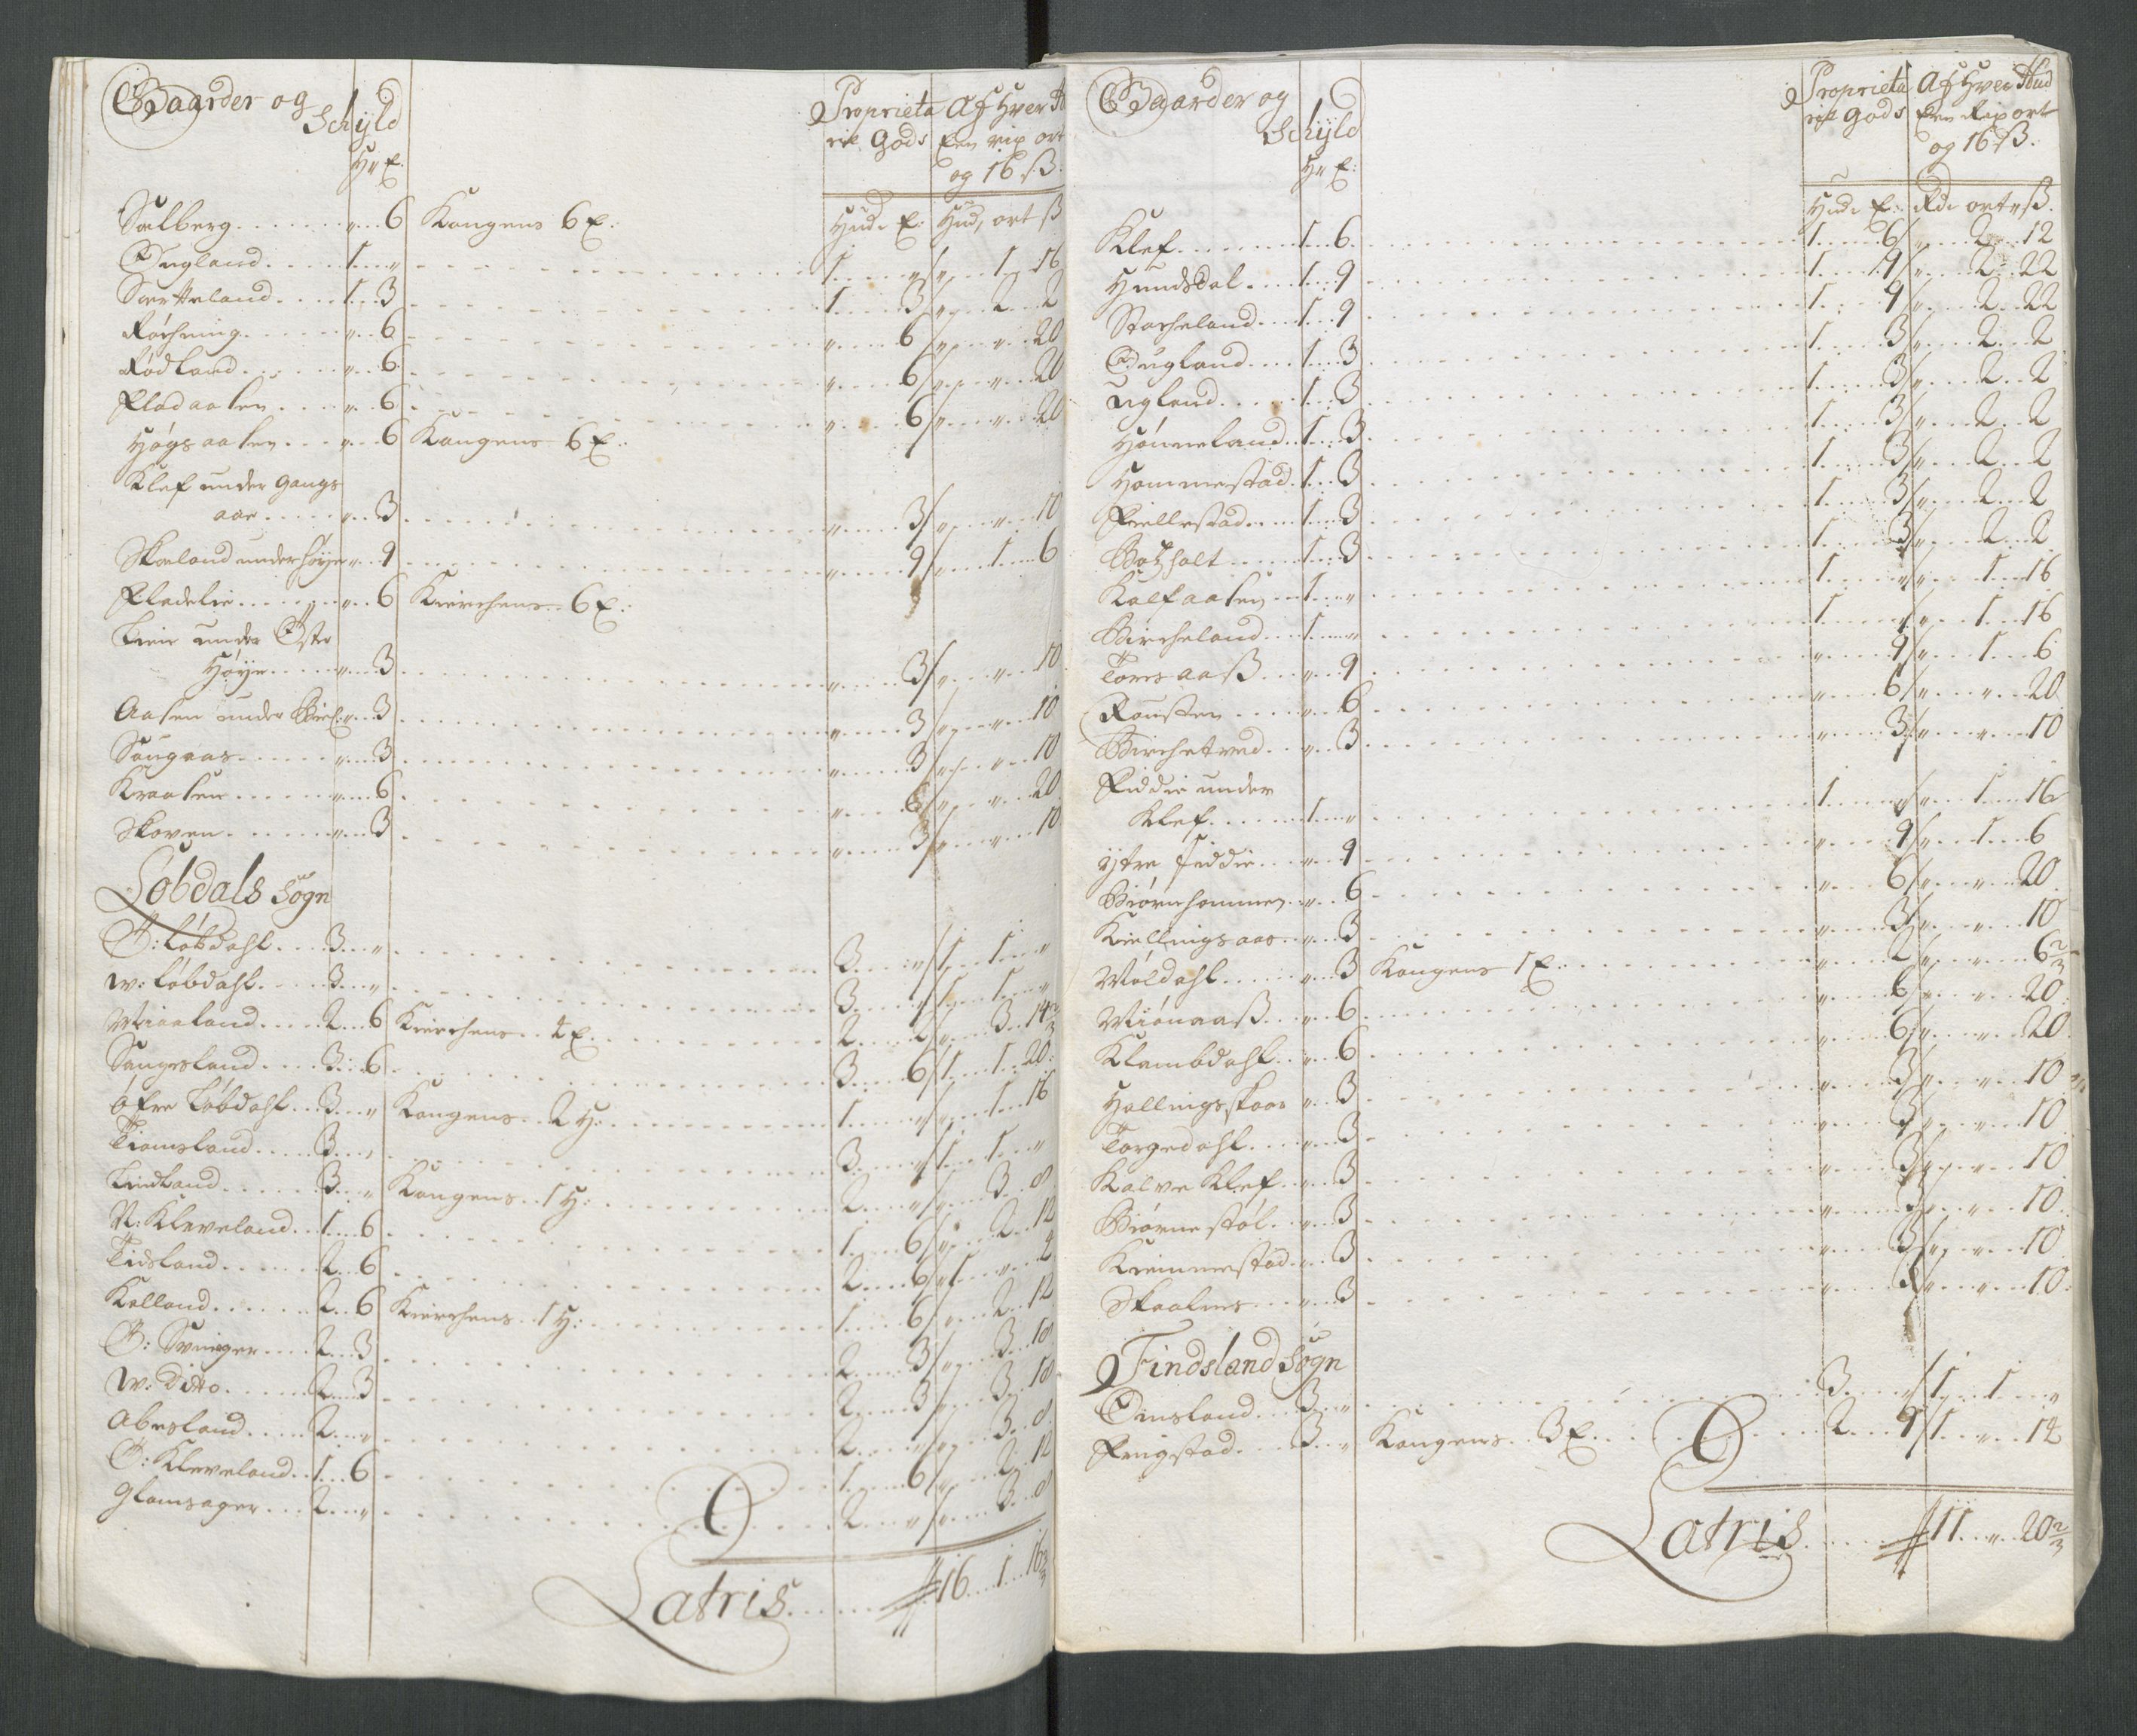 Gaarder og
Schÿld
H: E:
Proprieta
rie Gods
Af Hver H
Een rix ort
og 16 ß.
Hud: E: Hud, ort ß
Salberg . . . " . . 6 Kongens 6 E:
Øugland . . . 1 . . " . . . 1 . . " / " . . 1 . . 16
Sertteland . . . 1 . . 3 . . . 1 . . 3 / " . . 2 . . 2
Røchning . . . " . . 6 . . . " . . 6 / " . . " . . 20
Rødland . . . " . . 6 . . . " . . 6 / " . . " . . 20
Fladaasen . . . " . . 6 . . . " . . 6 / " . . " . . 20
Høgsaasen . . . " . . 6 Kongens 6 E:
Klef under Gangs
aae . . . " . . 3 . . . " . . 3 / " . . " . . 10
Skoeland under Høye " . . 9 . . . " . . 9 / " . . 1 . . 6
Fladelie . . . " . . 6 Kierchens 6 E:
Liene under Østr
Høye . . . " . . 3 . . . " . . 3 / " . . " . . 10
Aasen under Birch: " . . 3 . . . " . . 3 / " . . " . . 10
Saugaas . . . " . . 3 . . . " . . 3 / " . . " . . 10
Kraasen . . . " . . 6 . . . " . . 6 / " . . " . . 20
Skoven . . . " . . 3 . . . " . . 3 / " . . " . . 10
Løbdals Sogn
Ø: Løbdahl . . . 3 . . " . . . 3 . . " / 1 . . 1 . . "
W: Løbdahl . . . 3 . . " . . . 3 . . " / 1 . . 1 . . "
Miaaland . . . 2 . . 6 Kierchens 4 E . . . 2 . . 2 / " . . 3 . . 14 2/3
Saugesland . . . 3 . . 6 . . . 3 . . 6 / 1 . . 1 . . 20
Øfre Løbdahl . . . 3 . . " Kongens 2 H: . . . 1 . . " / " . . 1 . . 16
Tiomsland . . . 3 . . " . . . 3 . . " / 1 . . 1 . . "
Lindland . . . 3 . . " Kongens 1 H: . . . 2 . . " / " . . 3 . . 8
N: Kleveland . . 1 . . 6 . . . 1 . . 6 / " . . 2 . . 12
Tidsland . . . 2 . . 6 . . . 2 . . 6 / 1 . . " . . 4
Kolland . . . 2 . . 6 Kierchens 1 H: . . . 1 . . 6 / " . . 2 . . 12
Ø: Svinger . . . 2 . . 3 . . . 2 . . 3 / " . . 3 . . 18
W: Ditto . . . 2 . . 3 . . . 2 . . 3 / " . . 3 . . 18
Abesland . . . 2 . . " . . . 2 . . " / " . . 3 . . 8
Ø: Kleveland . . 1 . . 6 . . . 1 . . 6 / " . . 2 . . 12
Glamsager . . . 2 . . " . . . 2 . . " / " . . 3 . . 8
Latris . . . 16 . . 1 . . 16 2/3
Gaarder og
Schÿld
H: E:
Proprieta
rie Gods
Af Hver Hud
Een Rix ort
og 16 ß.
Hud: E: Rd: ort " ß.
Klef . . . 1 . . 6 . . . 1 . . 6 / " . . 2 . . 12
Hundsdal . . . 1 . . 9 . . . 1 . . 9 / " . . 2 . . 22
Storheland . . . 1 . . 9 . . . 1 . . 9 / " . . 2 . . 22
Øugland . . . 1 . . 3 . . . 1 . . 3 / " . . 2 . . 2
Ugland . . . 1 . . 3 . . . 1 . . 3 / " . . 2 . . 2
Hønneland . . 1 . . 3 . . . 1 . . 3 / " . . 2 . . 2
Hommestad . 1 . . 3 . . . 1 . . 3 / " . . 2 . . 2
Fiellestad . . . 1 . . 3 . . . 1 . . 3 / " . . 2 . . 2
Botzholt . . . 1 . . 3 . . . 1 . . 3 / " . . 2 . . 2
Kalfaasen . . . 1 . . " . . . 1 . . " / " . . 1 . . 16
Bircheland . . 1 . . " . . . 1 . . " / " . . 1 . . 16
Toresaaß . . . " . . 9 . . . " . . 9 / " . . 1 . . 6
Rousten . . . " . . 6 . . . " . . 6 / " . . " . . 20
Birchetved . . " . . 3 . . . " . . 3 / " . . " . . 10
Fiddie under
Klef . . . 1 . . " . . . 1 . . " / " . . 1 . . 16
Ÿtre Fiddie . . " . . 9 . . . " . . 9 / " . . 1 . . 6
Biørnhommen . . " . . 6 . . . " . . 6 / " . . " . . 20
Kiellingsaas . . " . . 3 . . . " . . 3 / " . . " . . 10
Møldahl . . . " . . 3 Kongens 1 E . . . " . . 2 / " . . " . . 6 2/3
Miønaaß . . . " . . 6 . . . " . . 6 / " . . " . . 20
Klambdahl . . " . . 6 . . . " . . 6 / " . . " . . 20
Hallingsskaar " . . 3 . . . " . . 3 / " . . " . . 10
Torgedahl . . . " . . 3 . . . " . . 3 / " . . " . . 10
Kalve Klef . . " . . 3 . . . " . . 3 / " . . " . . 10
Biørnestøl . . " . . 3 . . . " . . 3 / " . . " . . 10
Kremmestad . . " . . 3 . . . " . . 3 / " . . " . . 10
Skaalnes . . . " . . 3 . . . " . . 3 / " . . " . . 10
Findsland Sogn
Omsland . . . 3 . . " . . . 3 . . " / 1 . . 1 . . "
Frigstad . . . 3 . . " Kongens 3 E . . . 2 . . 9 / 1 . . " . . 14
Latris . . . 11 . . " . . 20 2/3